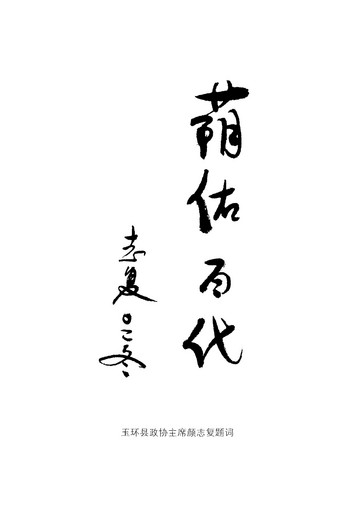 荫佑百代
志复
〇二冬
玉环县政协主席颜志复题词